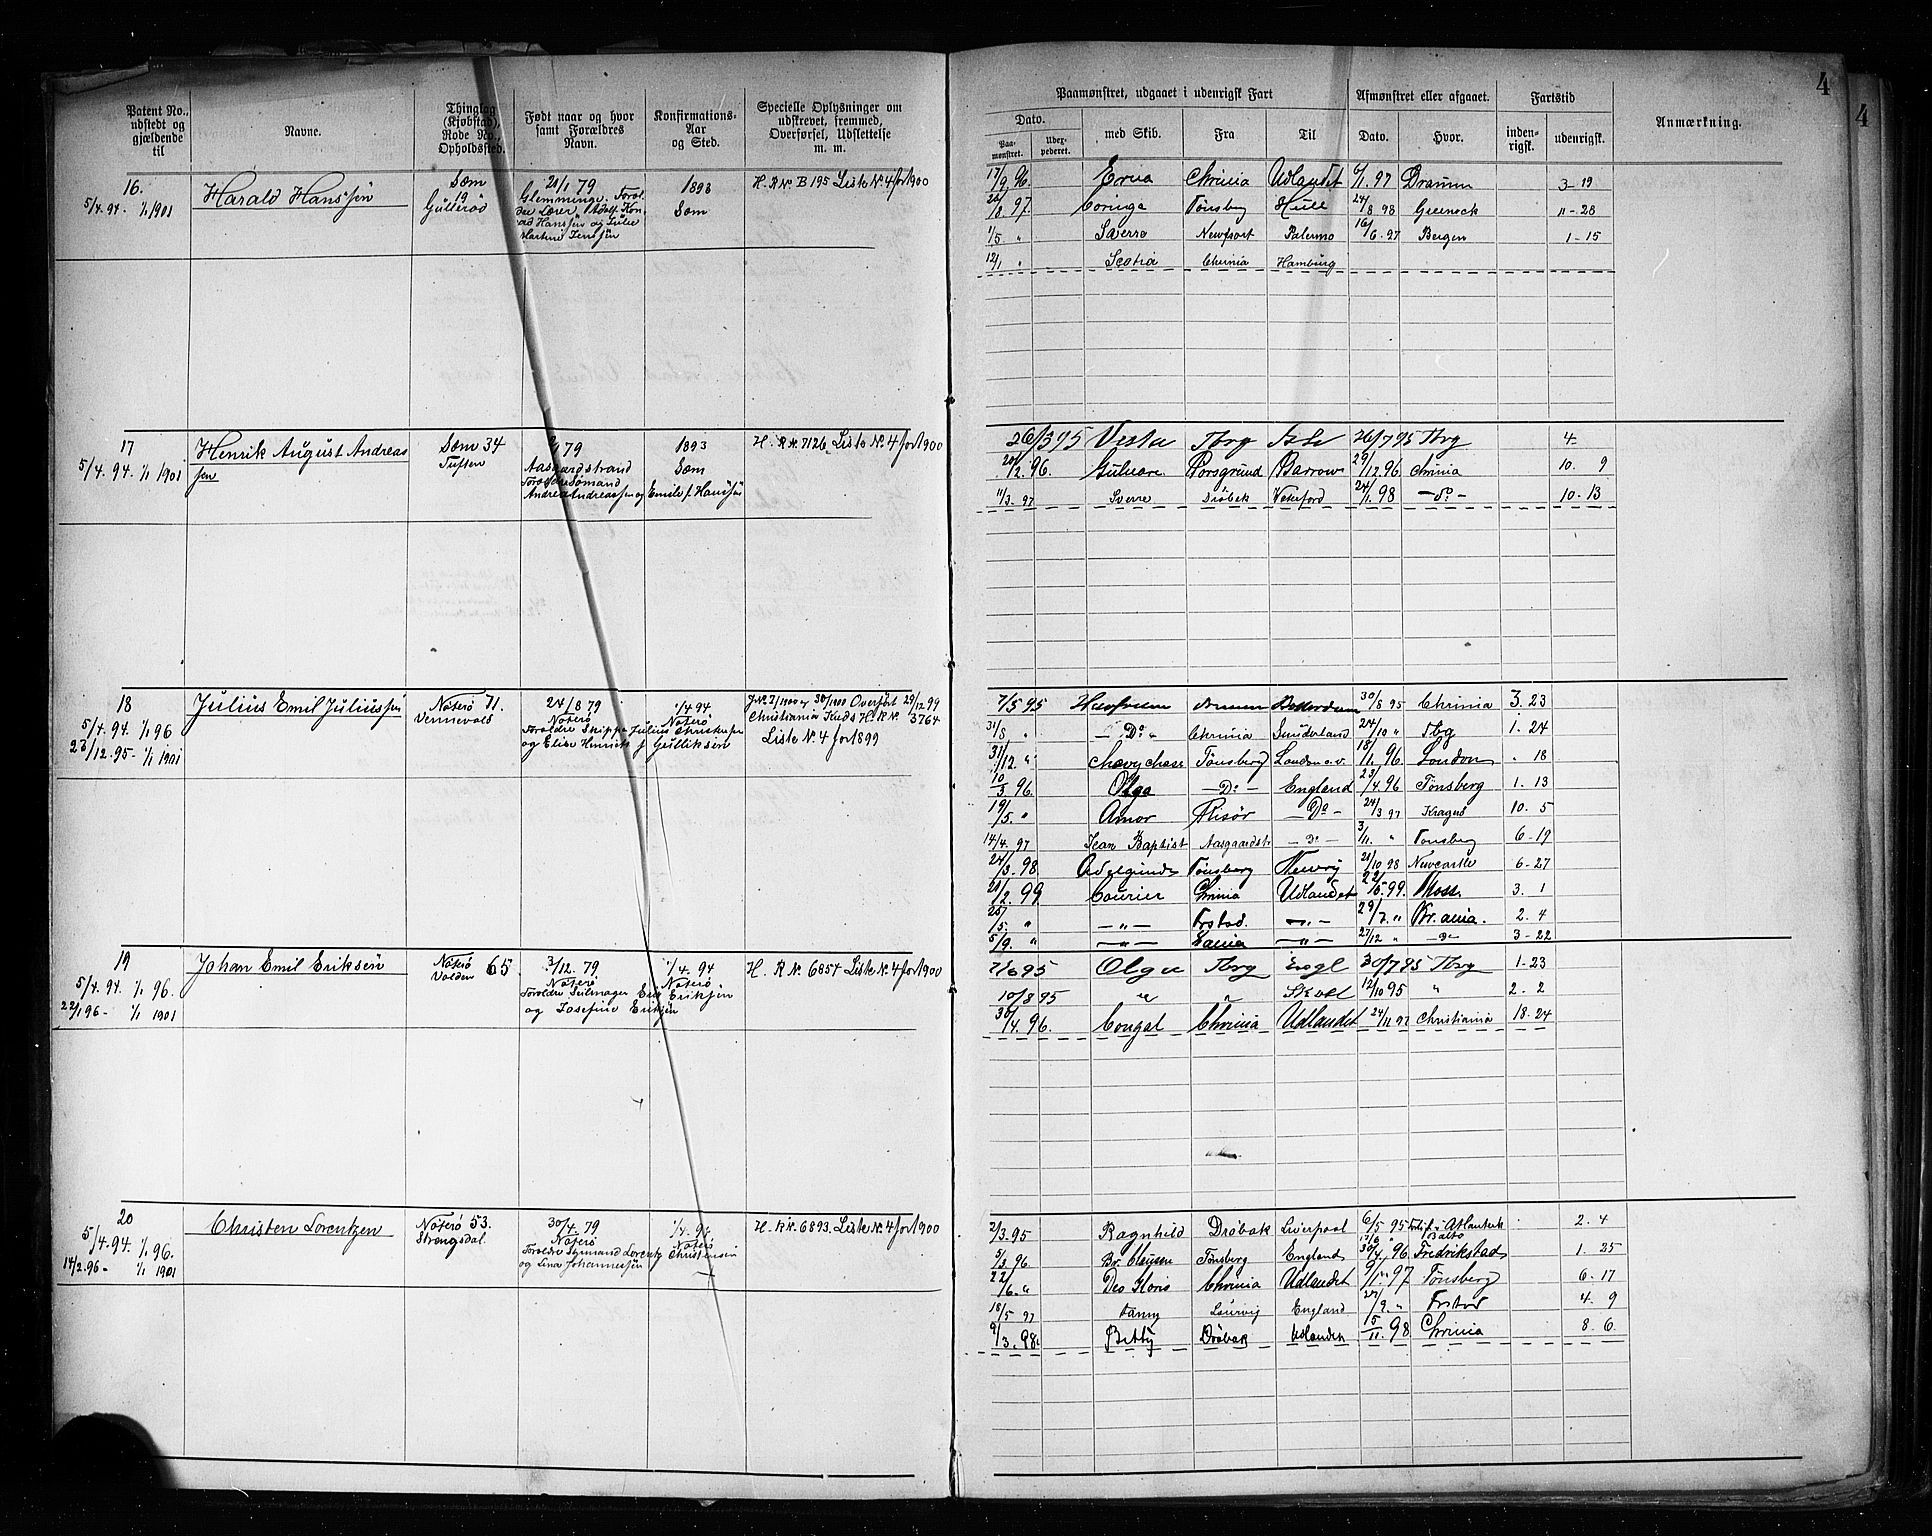 4
4
Patent No., udstedt og gjældende til
Navne.
Thinglag (Kjøbstad), Rode No., Opholdssted.
Født naar og hvor samt Forældres Navn.
Konfirmations-Aar og Sted.
Specielle Oplysninger om udskrevet, fremmed, Overførsel, Udslettelse m. m.
Paamønstret, udgaaet i udenrigsk Fart
Afmønstret eller afgaaet.
Fartstid
Anmærkning.
Dato.
Paa-mønstret.
Uder-pederet.
med Skib.
Fra
Til
Dato.
Hvor.
inden-rigsk.
udenrigsk.
16.
5/4. 94. 1/1 1901
Harald Hanssen
Sæm
19
Gullerød
21/1 79
Glemminge. Foræl-
dre Lærer Adolf Kon-
rad Hanssen og Julie
Martine Jenssen
1893
Sæm
H. R No B 195 Liste No 4 for 1900
17/9 96 Erna Chrinia Udlandet 6/1. 97 Dramm 3-19
26/8 97 Coringa Tønsberg Hull 24/8 98 Greenock 11-28
1/5 " Sverre Newport Palermo 16/6. 97 Bergen 1-15
12/1 " Scotia Chrinia Hamburg
17
5/4. 94. 1/1 1901
Henrik August Andreas
sen
Sæm 34
Tuften
79
Aasgaardstrand
Forældre Sømand
Andreas Andreassen og Emilie f. Hanssen
1893
Sæm
H. R No. 7126. Liste No. 4 for 1900
26/3 95 Vesta Tbrg 26/7 95 Tbrg 4-
20/2. 96. Gulnare Porsgrund Barrow 29/12. 96 Chrinia 10. 9
11/3. 97 Sverre Drøbak 24/1. 98 -Do- 10-13
18
5/4. 94. 1/1 96
23/12. 95- 1/1 1901
Julius Emil Juliussen
Nøterø 71.
Vennevold
24/8 79
Nøterø
Forældre Skipper Julius Christofersen
og Elise Henriette f Gulliksen
1/4 94
Nøterø
J. No. 7/1900 af 30/1 1900 Overført 29/12 99
Christiania Kreds H. R No. 3764
Liste No. 4 for 1899
7/5 95 30/8 95 Chrinia 3. 23
31/8 " -Do- Chrinia Sunderland 24/10 " Tbg 1. 24
31/12. " Chevy chase Tønsberg London o. v. 18/1. 96. London . 18
10/3 96. Olga -Do- England 23/4 96 Tønsberg 1. 13
19/5. " Amor Risør -Do- 24/3 97 Kragerø 10. 5
14/4. 97 Jean Baptist Aasgaardstr -Do- 3/11. " Tønsberg 6-19
24/3. 98 Adelgunde Tønsberg Newry 21/10 98 Newcastle 6-27
21/2. 99 Courier Chrinia Udlandet 22/5. 99. Moss 3. 1
25/5. " -"- Frstad. -"- 29/7. " Kr.ania. 2. 4
5/9. " -"- -"- 27/12 " -Do- 3-22
19
5/4. 94. 1/1 96.
22/1 96- 1/1 1901
Johan Emil Eriksen
Nøterø 65
Volden
3/12. 79
Nøterø
Forældre Seilmager Erik Eriksen
og Josefine Eriksen
1/4. 94
Nøterø
H. R No. 6857 Liste No. 4 for 1900
7/6 95 Olga Tbrg Engl 30/7 95 Tbrg 1-23
10/8 95 " " 12/10 95 " 2. 2
30/4. 96. Congal Chrinia Udlandet 24/11 97 Christiania 18. 24
20
5/4. 94. 1/1 96.
14/2. 96- 1/1 1901
Christen Lorentzen
Nøterø 53.
Strengsdal.
30/4. 79
Nøterø
Forældre Sømand Lorentz Christensen
og Lina Johannessen
1/4. 94
Nøterø
H. R No. 6893. Liste No. 4 for 1900
2/3. 95 Ragnhild Drøbak Liverpool 6/5 95 Atlanterh 2. 4
5/3 96 Br. Clausen Tønsberg England 30/4. 96 Fredrikstad 1. 25
22/6. " Chrinia Udlandet 9/1. 97 Tønsberg 6. 17
18/5 97 Fanny Laurvig England 27/9. " Frstad 4. 9
9/3. 98. Betty Drøbak Udlandet 15/11. 98 Chrinia 8. 6